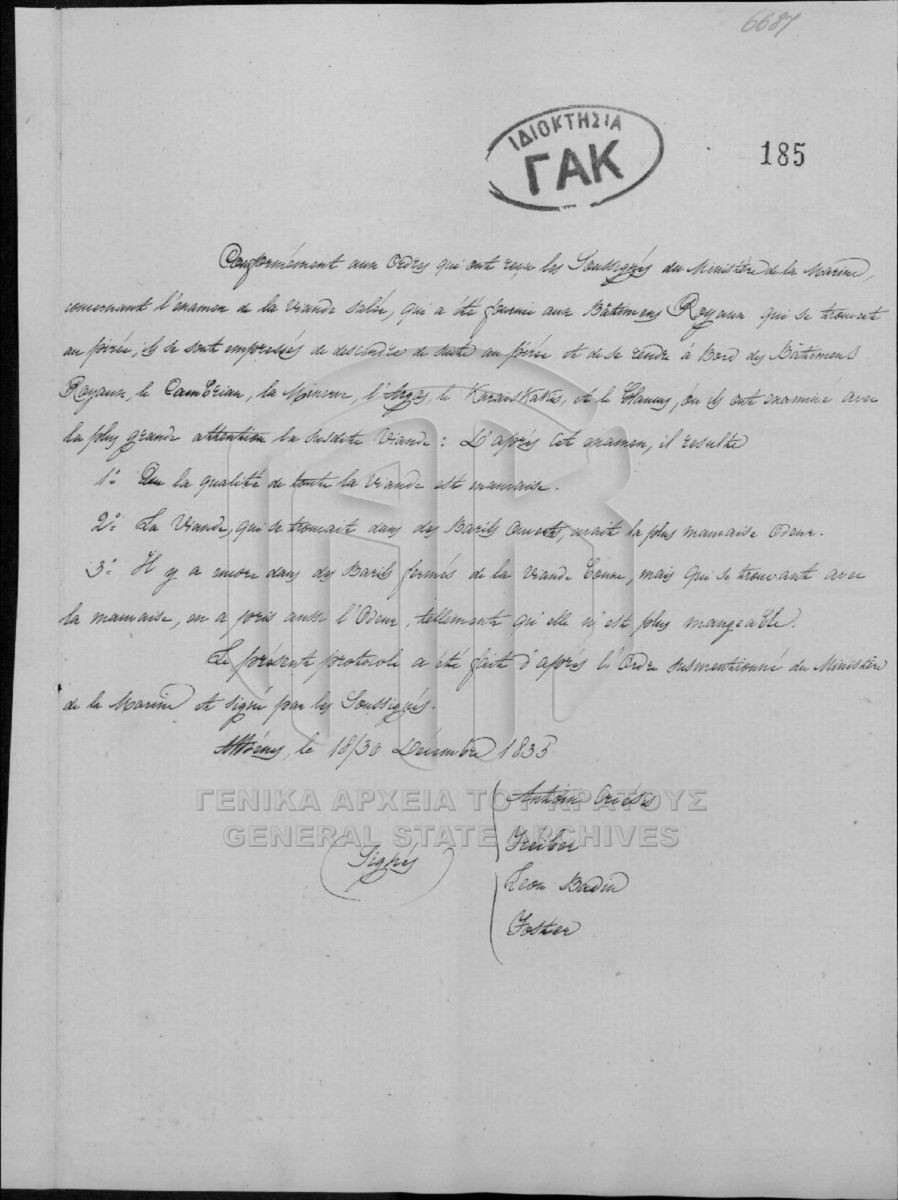 6687
ΙΔΙΟΚΤΗΣΙΑ
ΓΑΚ
185
Conformément aux Ordres qui ont reçu les Soussignés du Ministère de la Marine,
concernant l'examen de la viande salée, qui a été fournie aux Bâtimens Royaux qui se trouvent
au pirée, ils se sont empressés de descendre de suite au pirée et de se rendre à Bord des Bâtimens
Royaux, le Cambrian, la Minerve, l', le Karaiskakis, et le Glaucus, où ils ont examiné avec
la plus grande attention la susdite Viande: D'après cet examen, il resulte
1º Que la qualité de toute la Viande est mauvaise.
2º La Viande, qui se trouvait dans des Barils ouverts, avait la plus mauvaise Odeur.
3º Il y a encore dans des Barils fermés de la viande bonne, mais qui se trouvant avec
la mauvaise, en a pris aussi l'Odeur, tellement qu'elle n'est plus mangeable.
Le présent protocole a été fait d'après l'Ordre susmentionné du Ministère
de la Marine et signé par les Soussignés.
Athènes, le 18/30 Décembre 1835
ΓΕΝΙΚΑ ΑΡΧΕΙΑ ΤΟΥ ΚΡΑΤΟΥΣ
GENERAL STATE ARCHIVES
(Signés)
Antoine Criésis
Treiber
Leon Badin
Foster